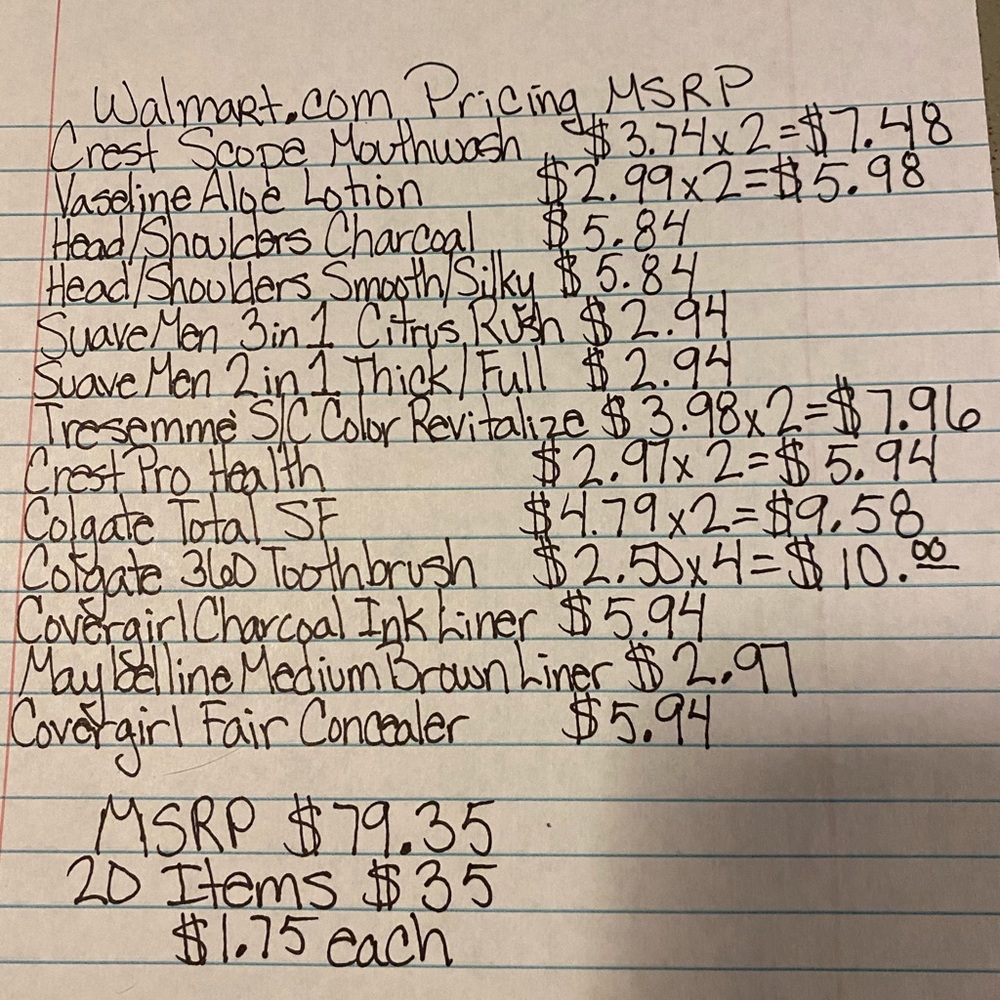 Walmart.com Pricing MSRP
Crest Scope Mouthwash $3.74x2=$7.48
Vaseline Aloe Lotion $2.99x2=$5.98
Head/Shoulders Charcoal $5.84
Head/Shoulders Smooth/Silky $5.84
Suave Men 3in1 Citrus Rush $2.94
Suave Men 2in1 Thick/Full $2.94
Tresemmé S/C Color Revitalize $3.98x2=$7.96
Crest Pro Health $2.97x2=$5.94
Colgate Total SF $4.79x2=$9.58
Colgate 360 Toothbrush $2.50x4=$10.00
Covergirl Charcoal Ink Liner $5.94
Maybelline Medium Brown Liner $2.97
Covergirl Fair Concealer $5.94
MSRP $79.35
20 Items $35
$1.75 each